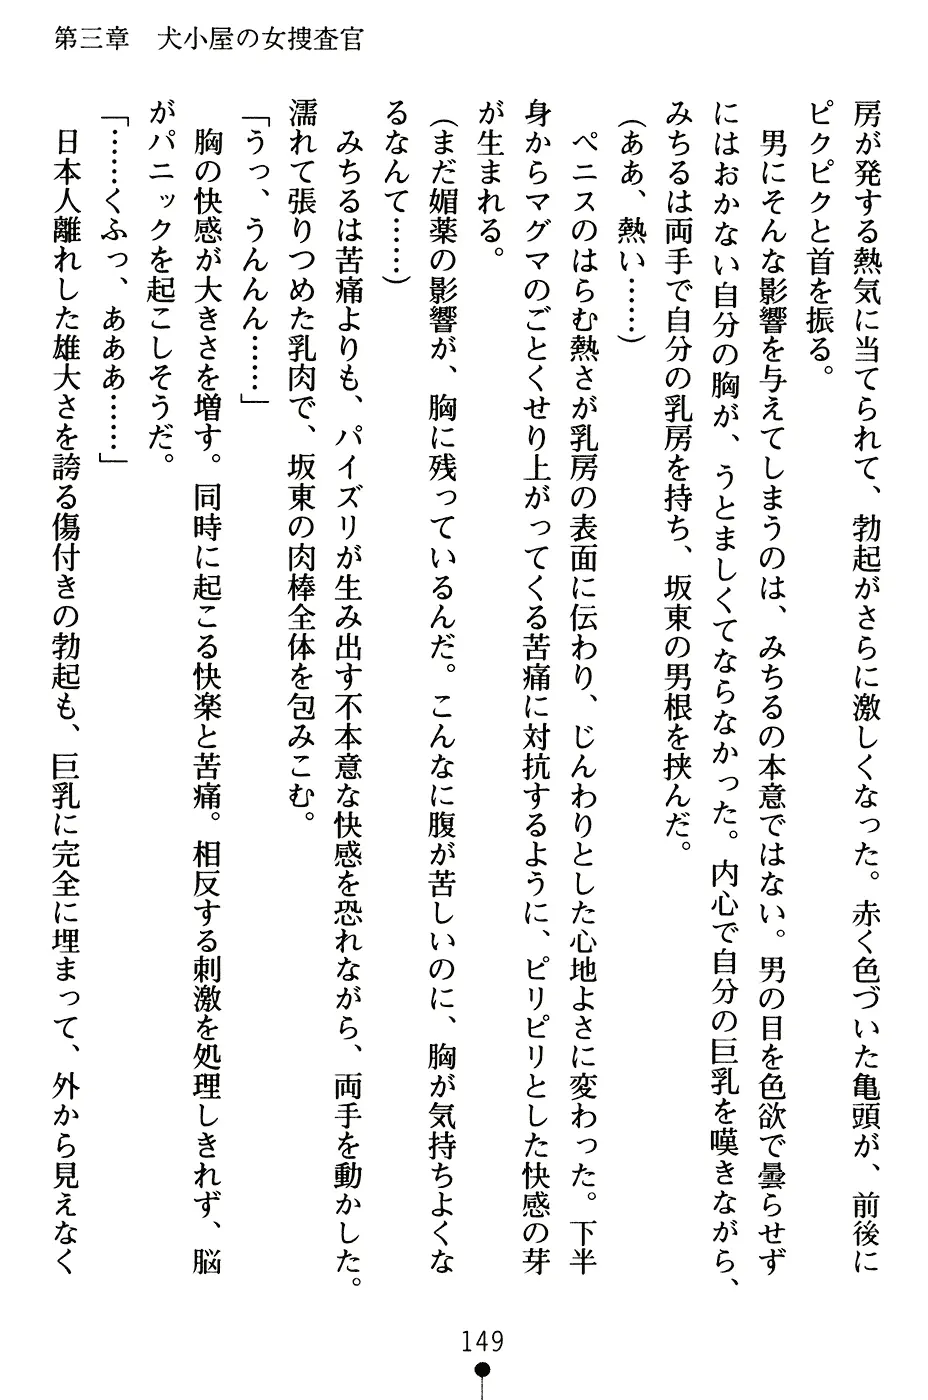 第三章　犬小屋の女捜査官
房が発する熱気に当てられて、勃起がさらに激しくなった。赤く色づいた亀頭が、前後に
ピクピクと首を振る。
　男にそんな影響を与えてしまうのは、みちるの本意ではない。男の目を色欲で曇らせず
にはおかない自分の胸が、うとましくてならなかった。内心で自分の巨乳を嘆きながら、
みちるは両手で自分の乳房を持ち、坂東の男根を挟んだ。
（ああ、熱い……）
　ペニスのはらむ熱さが乳房の表面に伝わり、じんわりとした心地よさに変わった。下半
身からマグマのごとくせり上がってくる苦痛に対抗するように、ピリピリとした快感の芽
が生まれる。
（まだ媚薬の影響が、胸に残っているんだ。こんなに腹が苦しいのに、胸が気持ちよくな
るなんて……）
　みちるは苦痛よりも、パイズリが生み出す不本意な快感を恐れながら、両手を動かした。
濡れて張りつめた乳肉で、坂東の肉棒全体を包みこむ。
「うっ、うんんん……」
　胸の快感が大きさを増す。同時に起こる快楽と苦痛。相反する刺激を処理しきれず、脳
がパニックを起こしそうだ。
「……くふっ、あああ……」
　日本人離れした雄大さを誇る傷付きの勃起も、巨乳に完全に埋まって、外から見えなく
149